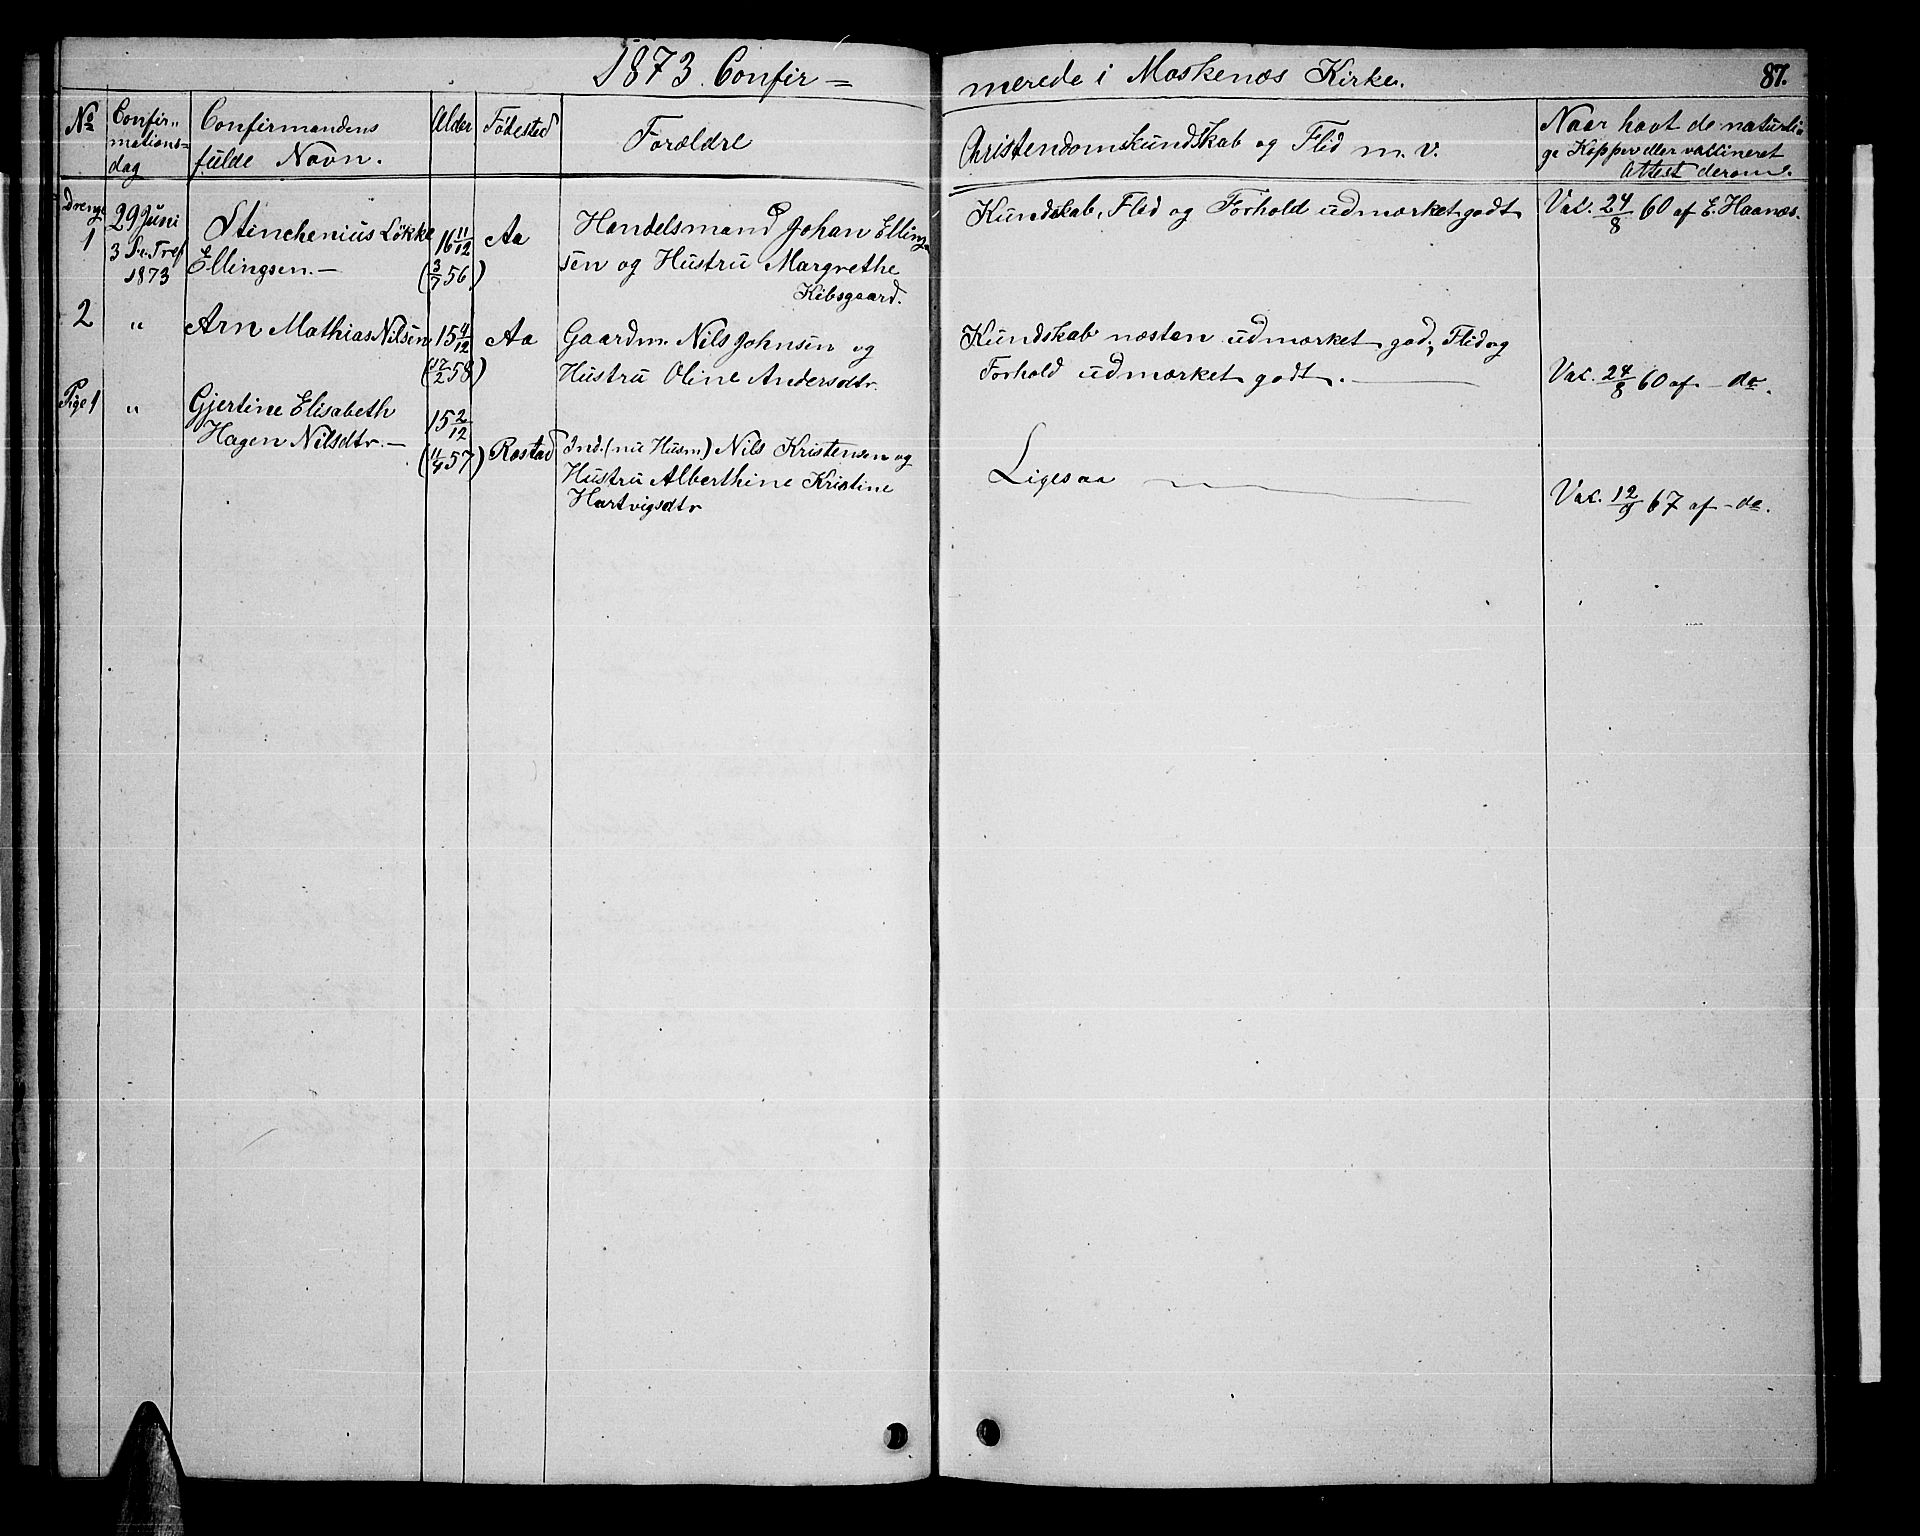 1873. Confir=
merede i Moskenæs Kirke.
87.
No
Confir„
mations=
dag
Confirmandens
fulde Navn.
Alder
Födested
Forældre
Christendomskundskab og Flid m. v.
Naar havt de naturli
ge Kopper eller vaccineret
Attest derom.
Drenge
1
29 Juni
3 S. e. Tref
1873
Stinchenius Lökke
Ellingsen. —
16 11/12
(3/7 56)
Aa
Handelsmand Johan Elling
sen og Hustru Margrethe
Kibsgaard.
Kundskab, Flid og Forhold udmærket godt
Vac. 24/8 60 af E. Haanæs.
2
„
Arn Mathias Nilsen
15 4/12
(17/2 58)
Aa
Gaardm. Nils Johnsen og
Hustru Oline Andersdtr.
Kundskab næsten udmærket god; Flid og
Forhold udmærket godt. —
Vac. 24/8 60 af - do.
Pige 1
„
Gjertine Elisabeth
Hagen Nilsdtr. —
15 2/12
(11/4 57)
Rostad
Ind. (nu Husm.) Nils Kristensen og
Hustru Alberthine Kristine
Hartvigsdtr
Ligesaa
Vac. 12/9 67 af - do.